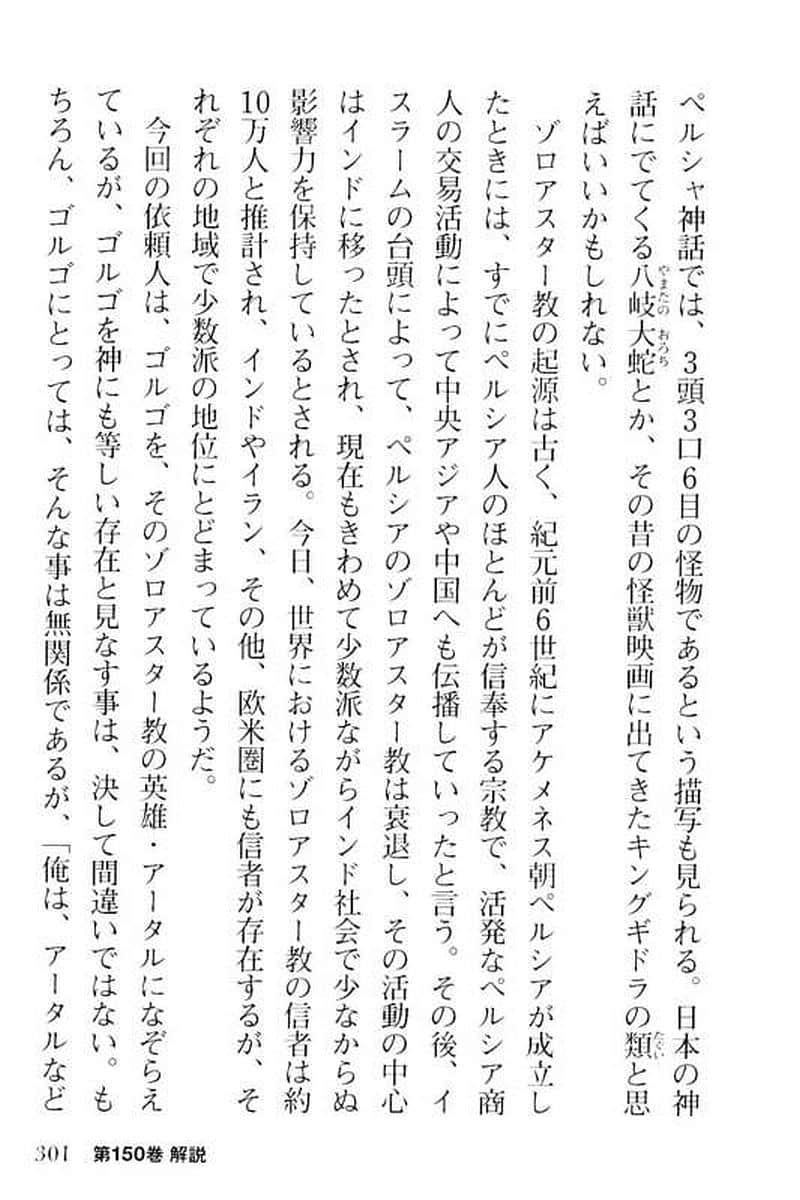 ペルシャ神話では、3頭3口6目の怪物であるという描写も見られる。日本の神
話にでてくる八岐大蛇とか、その昔の怪獣映画に出てきたキングギドラの類と思
えばいいかもしれない。
ゾロアスター教の起源は古く、紀元前6世紀にアケメネス朝ペルシアが成立し
たときには、すでにペルシア人のほとんどが信奉する宗教で、活発なペルシア商
人の交易活動によって中央アジアや中国へも伝播していったと言う。その後、イ
スラームの台頭によって、ペルシアのゾロアスター教は衰退し、その活動の中心
はインドに移ったとされ、現在もきわめて少数派ながらインド社会で少なからぬ
影響力を保持しているとされる。今日、世界におけるゾロアスター教の信者は約
10万人と推計され、インドやイラン、その他、欧米圏にも信者が存在するが、そ
れぞれの地域で少数派の地位にとどまっているようだ。
今回の依頼人は、ゴルゴを、そのゾロアスター教の英雄・アータルになぞらえ
ているが、ゴルゴを神にも等しい存在と見なす事は、決して間違いではない。も
ちろん、ゴルゴにとっては、そんな事は無関係であるが、「俺は、アータルなど
やまたの おろち
たぐい
301 第150巻 解説